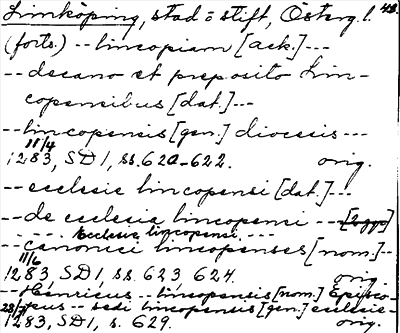 Linköping, stad o stift, Österg. l. 48.
(forts.) -- lincopiam [ack.] ---
-- decano et preposito Lin-
copensibus [dat.] --
-- lincopensis [gen.] diocesis ---
11/4
1283, SD 1, ss. 620-622. orig.
-- ecclesie lincopensi [dat.] --
-- de ecclesia lincopensi --- [2 ggr]
---- Ecclesie lincopensi ---
-- canonici lincopenses [nom.] --
11/6
1283, SD 1, ss. 623, 624. orig.
-- Henricus -- lincopensis [nom.] Episco-
pus -- sedi lincopensis [gen.] ecclesie --
1283, SD 1, s. 629. orig.